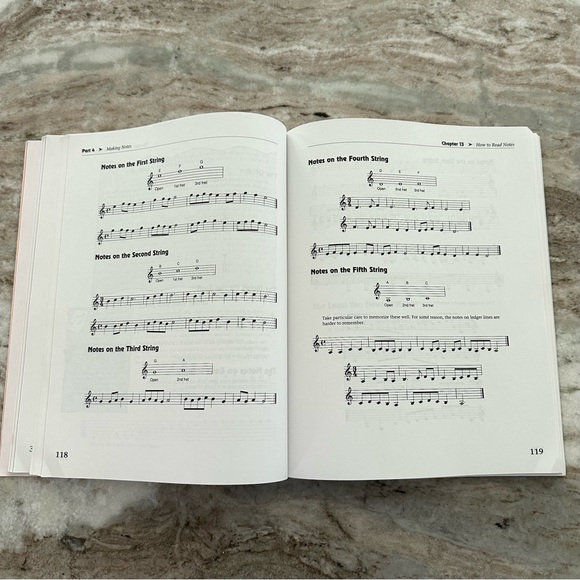 Part 4 ➤ Making Notes
Notes on the First String
E F G
Open 1st fret 3rd fret
Notes on the Second String
B C G
Open 1st fret 3rd fret
Notes on the Third String
G A
Open 2nd fret
118
Chapter 13 ➤ How to Read Notes
Notes on the Fourth String
D E F
Open 2nd fret 3rd fret
Notes on the Fifth String
A B C
Open 2nd fret 3rd fret
Take particular care to memorize these well. For some reason, the notes on ledger lines are
harder to remember.
119